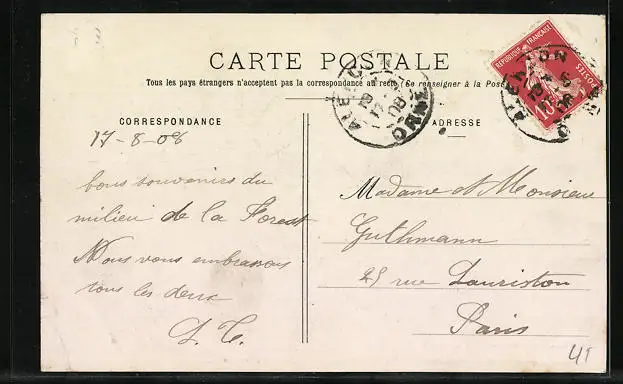 CARTE POSTALE
Tous les pays étrangers n'acceptent pas la correspondance au recto (Se renseigner à la Poste
CORRESPONDANCE
ADRESSE
17-8-08
bons souvenirs du
milieu de la Forest
Nous vous embrassons
tous les deux
Madame et Monsieur
Guthmann
25 rue Lauriston
Paris
ALENÇON
17
08
ORNE
REPUBLIQUE FRANÇAISE
POSTES
10